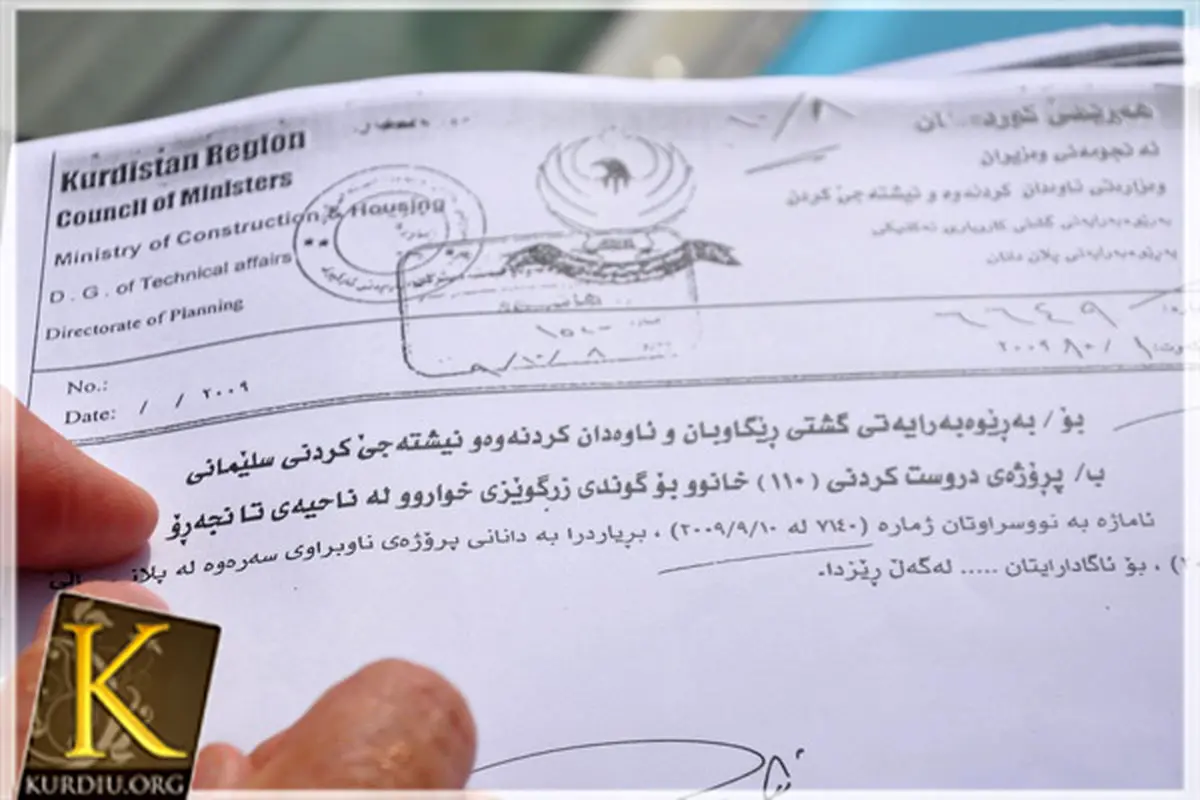 Kurdistan Region
Council of Ministers
Ministry of Construction & Housing
D . G . of Technical affairs
Directorate of Planning
No.:
Date: / / ٢٠٠٩
هەرێمی
ئەنجومەنی وەزیران
وەزارەتی ئاوەدان کردنەوە و نیشتەجێ کردن
بەڕێوەبەرایەتی گشتی کاروباری تەکنیکی
بەڕێوەبەرایەتی پلان دانان
٦٦٤٩
بۆ / بەڕێوەبەرایەتی گشتی ڕێگاوبان و ئاوەدان کردنەوەو نیشتەجێ کردنی سلێمانی
ب/ پڕۆژەی دروست کردنی (١١٠) خانوو بۆ گوندی زرگوێزی خواروو لە ناحیەی تانجەڕۆ
ئاماژە بە نووسراوتان ژمارە (٧١٤٠ لە ٢٠٠٩/٩/١٠) ، بڕیاردرا بە دانانی پرۆژەی ناوبراوی سەرەوە لە
، بۆ ئاگادارایتان ..... لەگەڵ ڕێزدا.
K
KURDIU.ORG